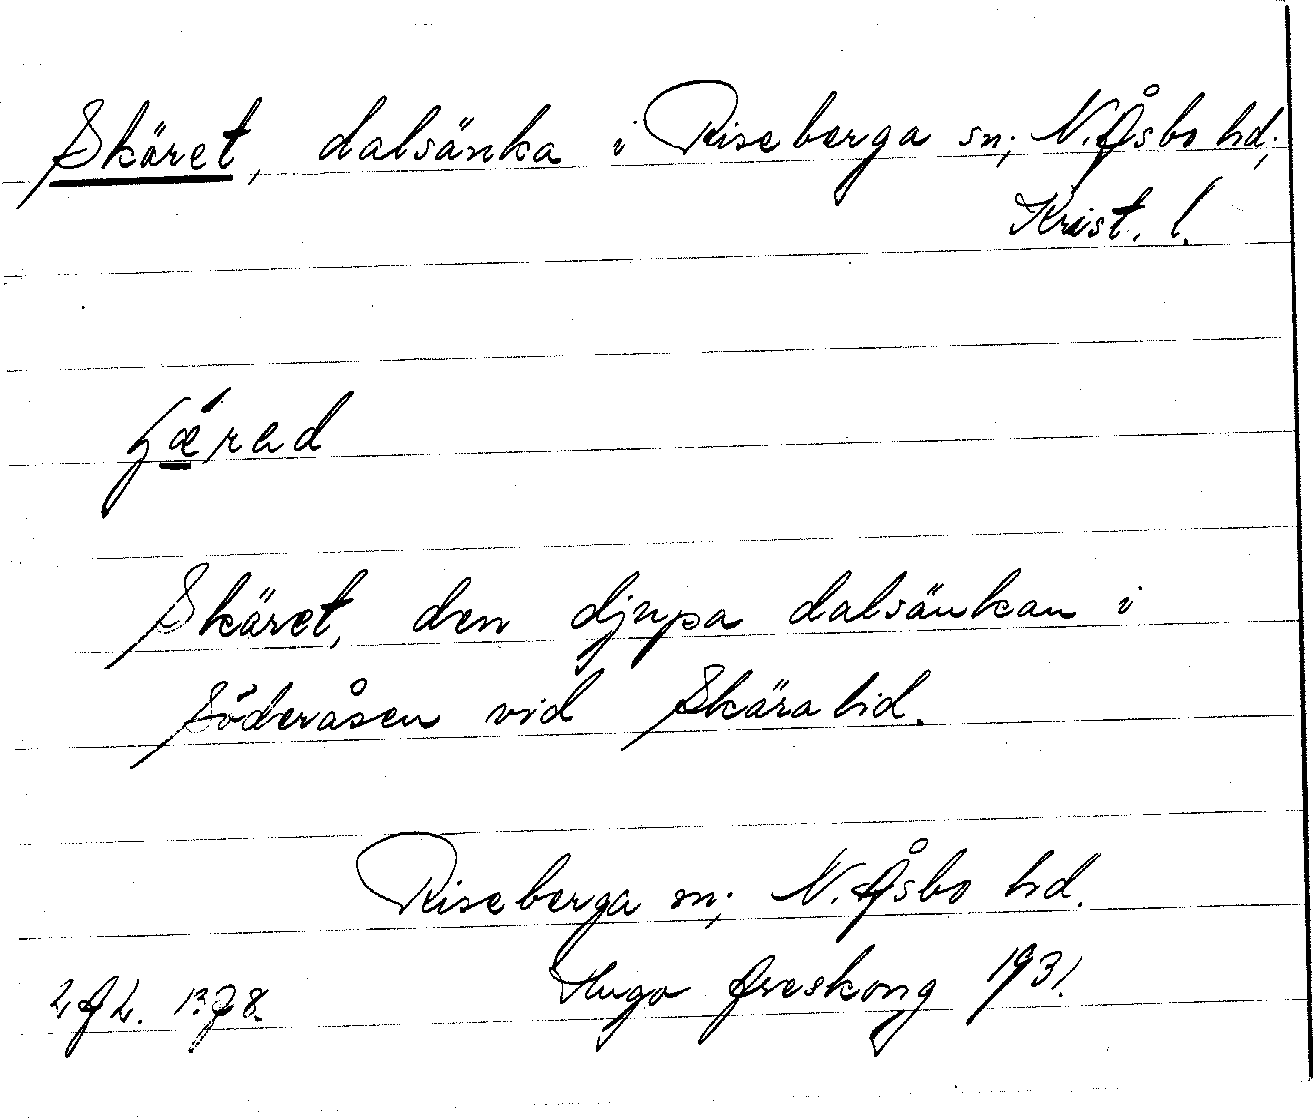 Skäret, dalsänka i Riseberga sn; N. Åsbo hd;
Krist. l.
Skäret, den djupa dalsänkan i
Söderåsen vid Skäralid.
Riseberga sn; N. Åsbo hd.
Hugo Areskoug 1931.